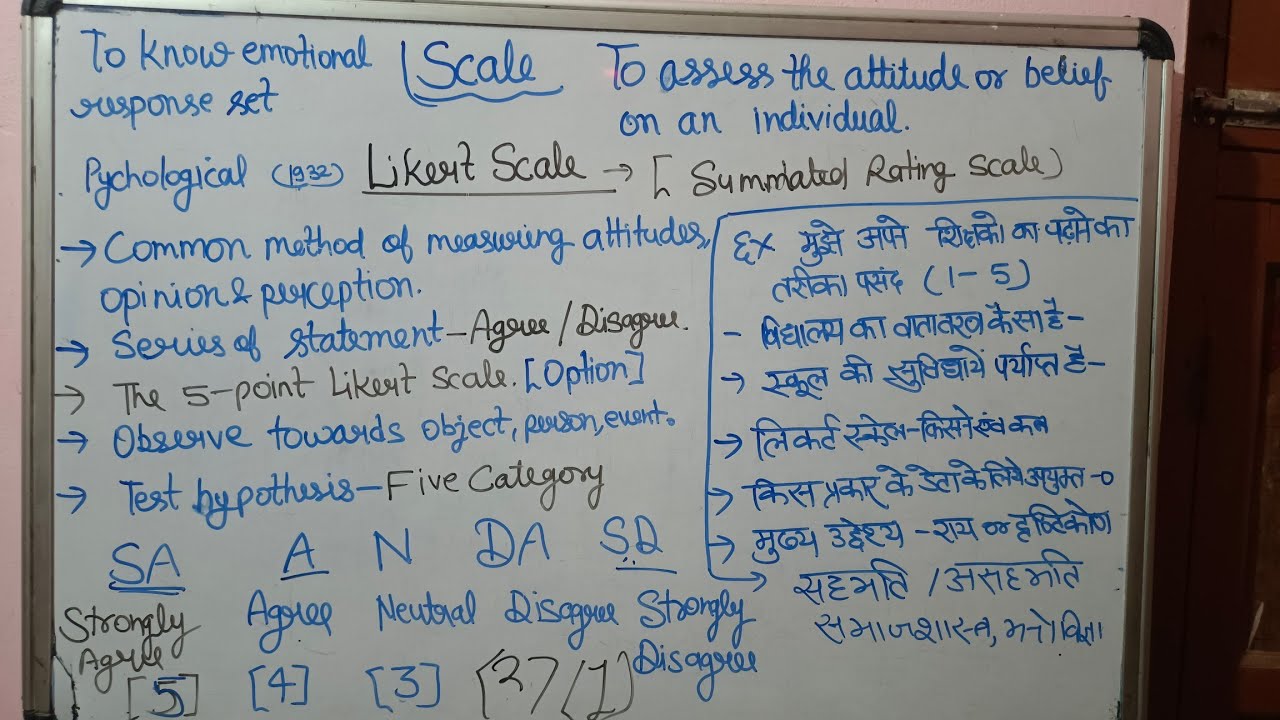 To know emotional
response set
Scale
To assess the attitude or belief
on an individual.
Pychological (1932) Likert Scale → [Summated Rating Scale)
→ Common method of measuring attitudes,
opinion & perception.
→ Series of statement - Agree / Disagree.
→ The 5-point Likert Scale. [Option]
→ Observe towards object, person, event.
→ Test hypothesis - Five Category
SA A N DA SD
Strongly Agree Neutral Disagree Strongly
Agree Disagree
[5] [4] [3] (2) (1)
Ex मुझे अपने शिक्षको का पढ़ाने का
तरीका पसंद (1-5)
- विद्यालय का वातावरण कैसा है -
→ स्कूल की सुविधायें पर्याप्त है -
→ लिकर्ट स्केल - किसने एवं कब
→ किस प्रकार के डेटा के लिये - 0
→ मुख्य उद्देश्य - राय or दृष्टिकोण
→ सहमति / असहमति
समाजशास्त्र,